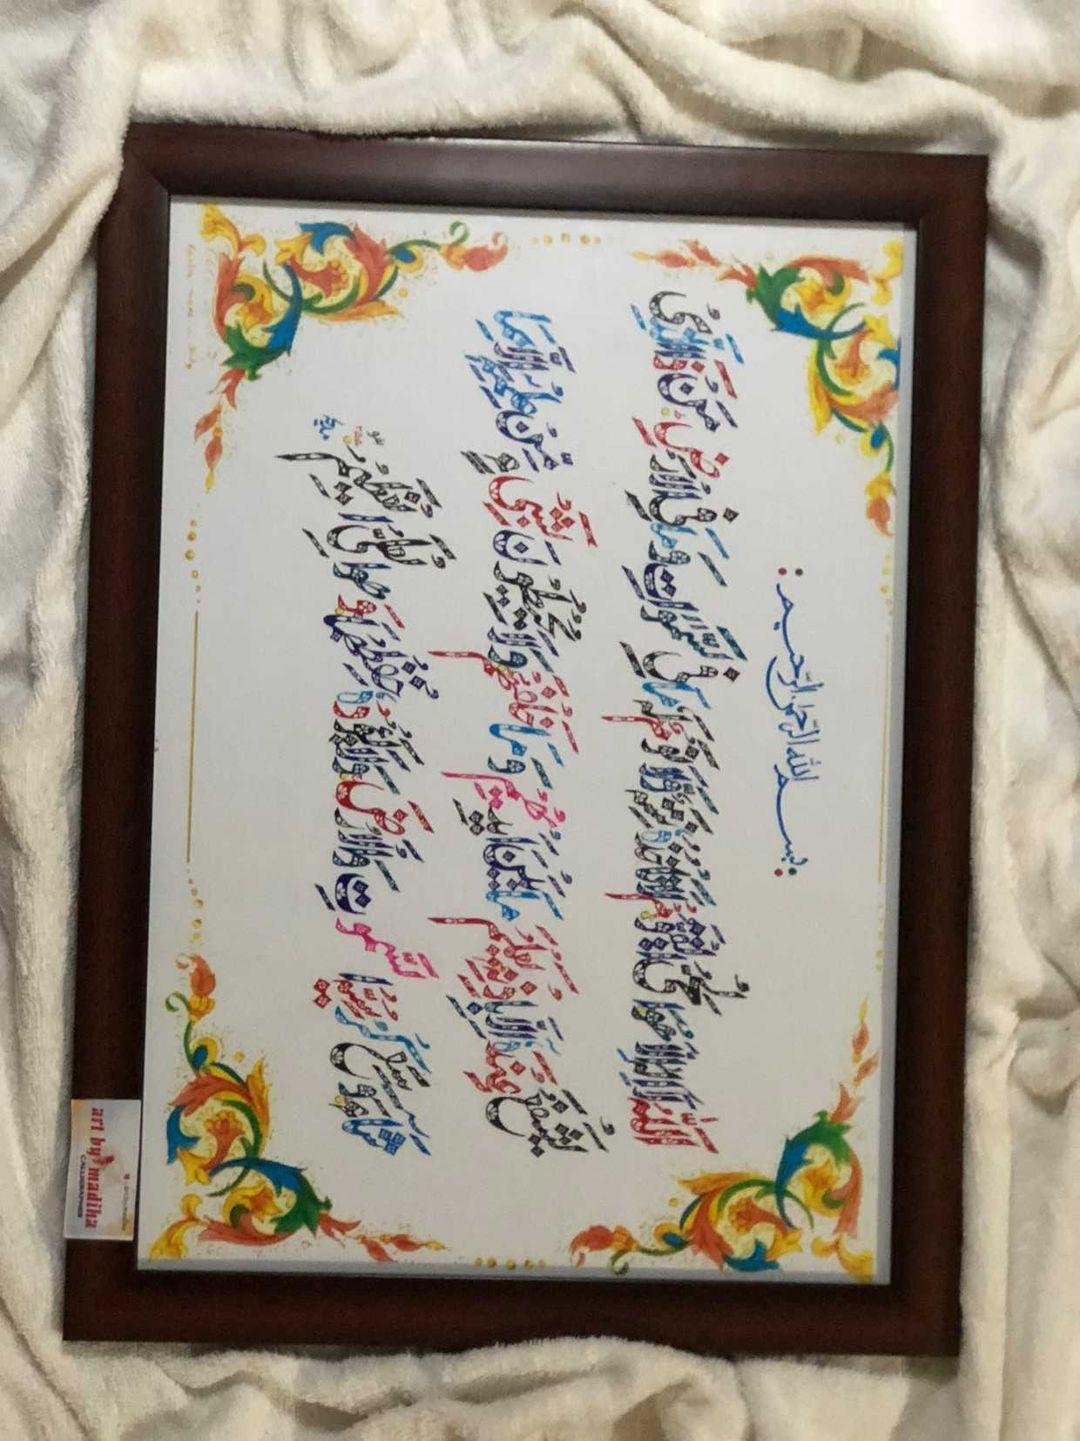 بسم الله الرحمن الرحيم
اَللّٰهُ لَآ اِلٰهَ اِلَّا هُوَ اَلْحَىُّ الْقَيُّوْمُ لَا تَاْخُذُهٗ سِنَةٌ وَّلَا نَوْمٌ لَهٗ مَا فِى السَّمٰوٰتِ وَمَا فِى الْاَرْضِ مَنْ ذَا الَّذِىْ
يَشْفَعُ عِنْدَهٗٓ اِلَّا بِاِذْنِهٖ يَعْلَمُ مَا بَيْنَ اَيْدِيْهِمْ وَمَا خَلْفَهُمْ وَلَا يُحِيْطُوْنَ بِشَىْءٍ مِّنْ عِلْمِهٖٓ اِلَّا بِمَا
شَآءَ وَسِعَ كُرْسِيُّهُ السَّمٰوٰتِ وَالْاَرْضَ وَلَا يَئُوْدُهٗ حِفْظُهُمَا وَهُوَ الْعَلِىُّ الْعَظِيْمُ
art by madiha
CALLIGRAPHER